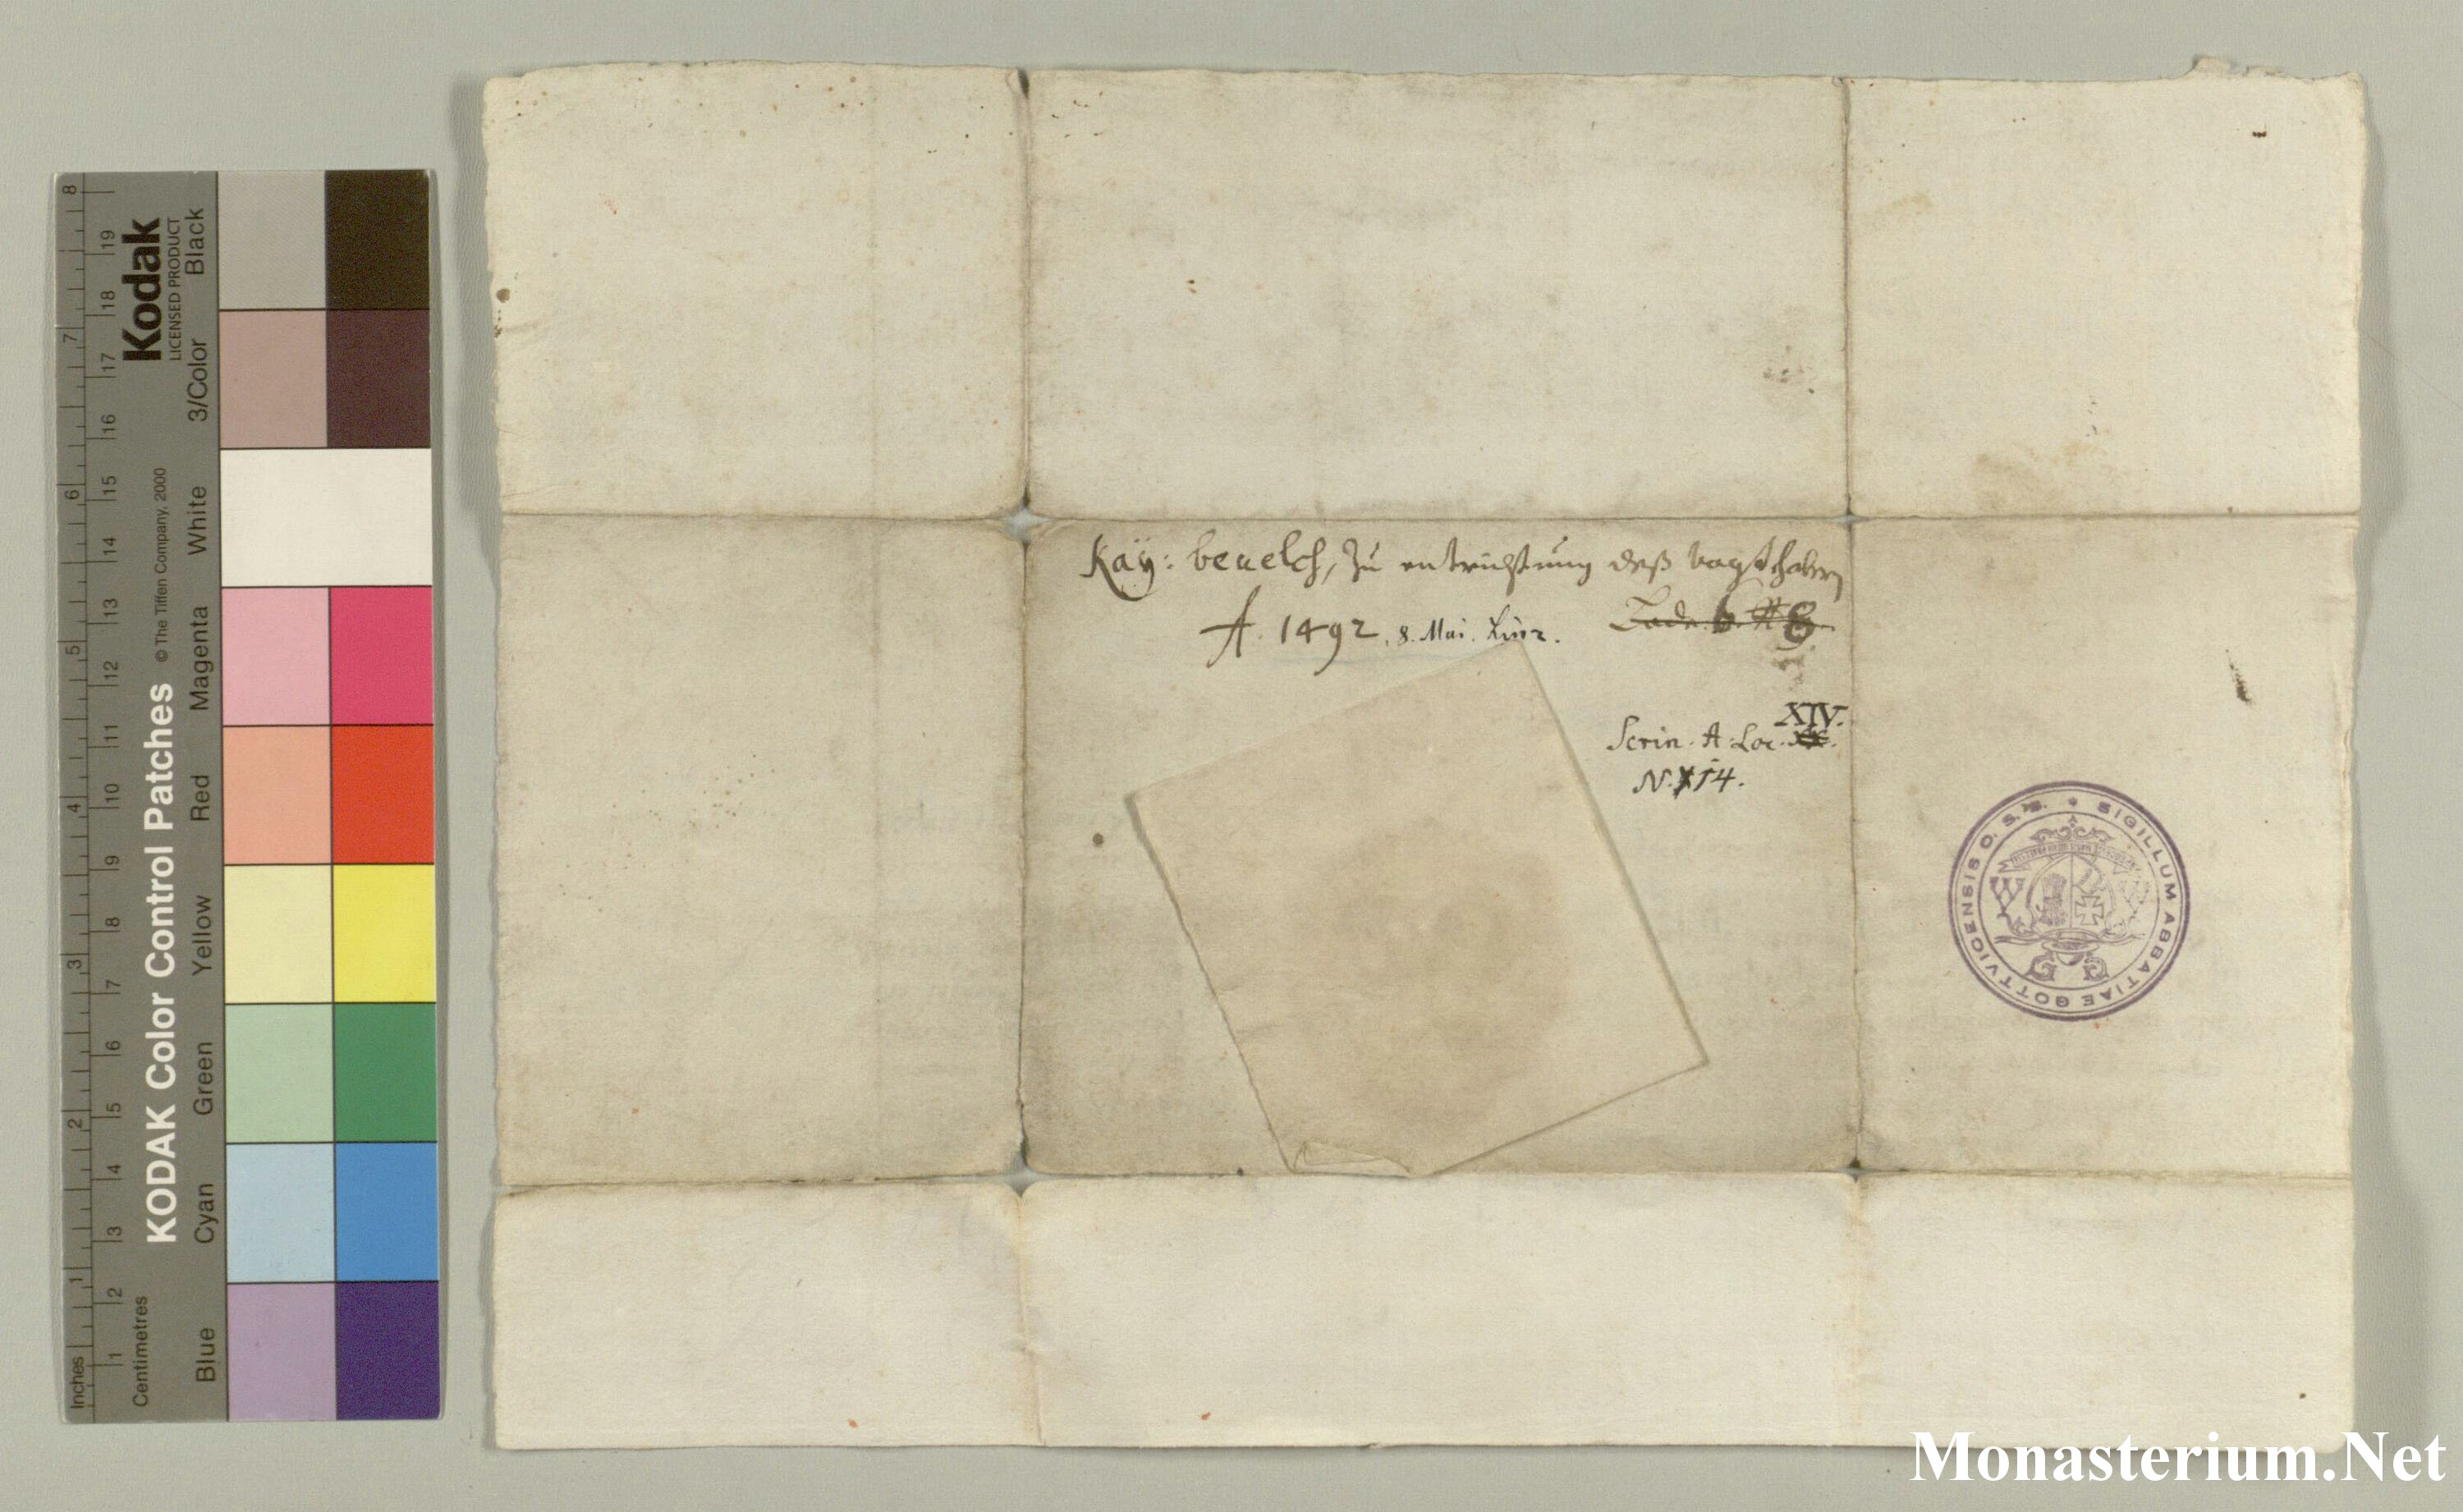 Kaÿ: beuelch, zu entrichtung deß vogthabern
A. 1492. 8. Mai. Linz.
Lade. 6. N 8.
XIV.
Scrin. A. Loc.
N. 14.
SIGILLUM ABBATIAE GOTTVICENSIS O. S. B.
KODAK Color Control Patches © The Tiffen Company, 2000
Kodak
LICENSED PRODUCT
Inches 1 2 3 4 5 6 7 8
Centimetres 1 2 3 4 5 6 7 8 9 10 11 12 13 14 15 16 17 18 19
Blue Cyan Green Yellow Red Magenta White 3/Color Black
Monasterium.Net